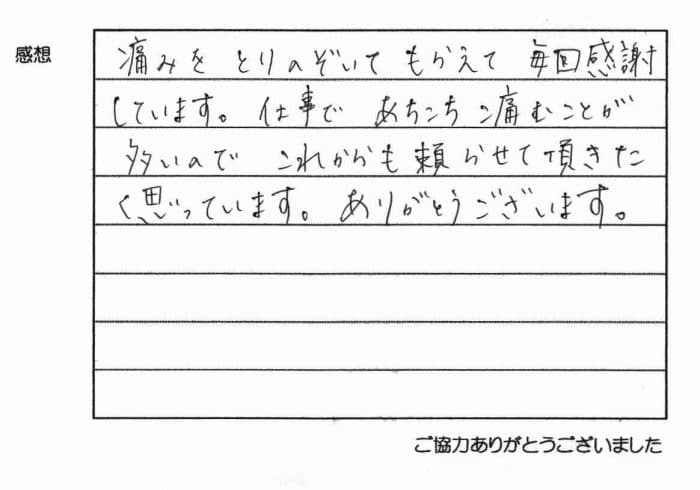 感想
痛みを とりのぞいて もらえて 毎回感謝
しています。仕事で あちこち痛むことが
多いので これからも頼らせて頂きた
く思っています。ありがとうございます。
ご協力ありがとうございました